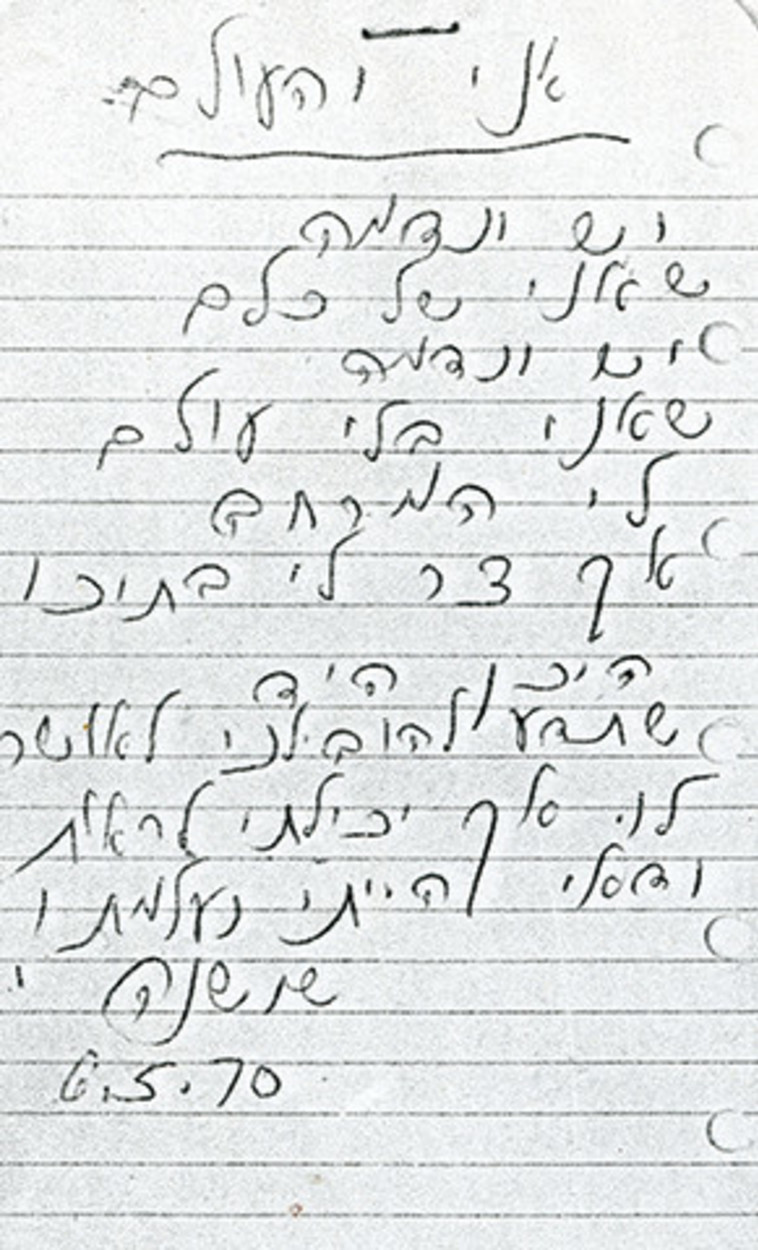 אני והעולם
יש ונדמה
שאני של כלם
יש ונדמה
שאני בלי עולם
לי המרחב
אך צר לי בתוכו
היכן היד
שתדע להובילני לאושר
לו אך יכולתי לראות
ודאי הייתי נעלמת ו
שושנה
6.5.70